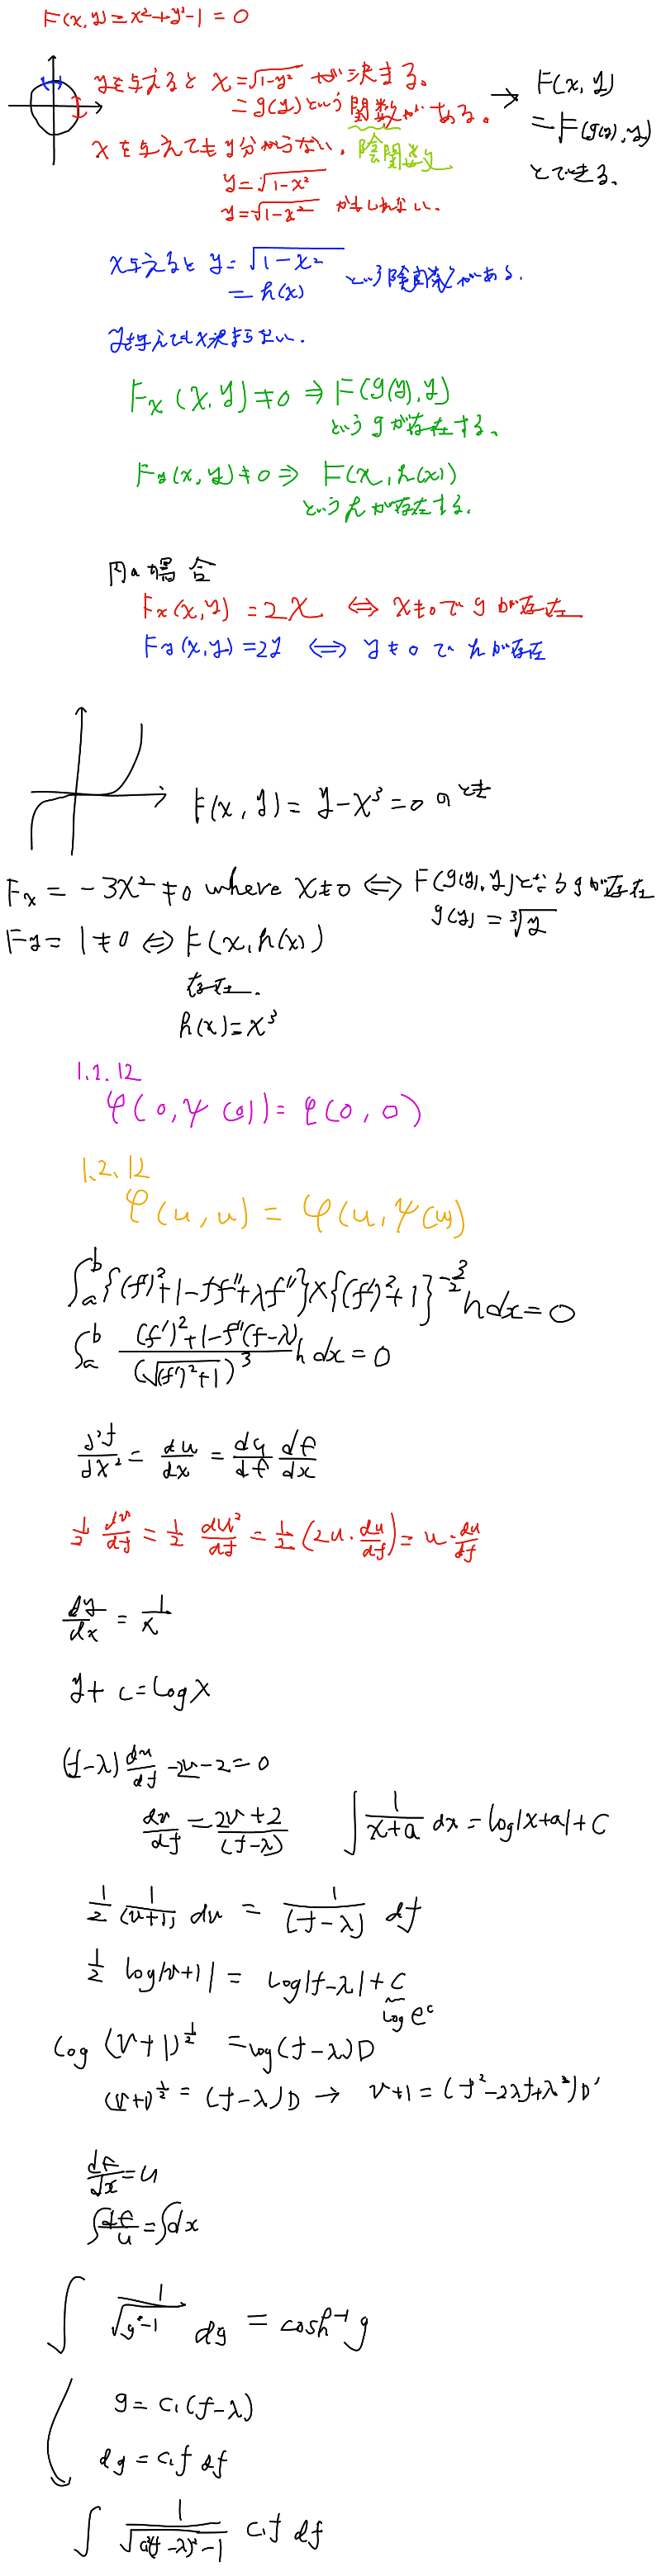 F(x,y)=x²+y²-1=0
yを与えると x=√1-y² が決まる。
=g(y)という関数がある。
陰関数
→ F(x,y)
=F(g(y),y)
とできる。
xを与えてもy分からない。
y=√1-x²
y=√1-x² かもしれない。
x与えると y=√1-x²
=h(x) という陰関数がある。
yを与えてもx決まらない。
Fx(x,y)≠0 ⇒ F(g(y),y)
というgが存在する。
Fy(x,y)≠0 ⇒ F(x,h(x))
というhが存在する。
円の場合
Fx(x,y)=2x ⇔ x≠0でgが存在
Fy(x,y)=2y ⇔ y≠0でhが存在
F(x,y)=y-x³=0のとき
Fx=-3x²≠0 where x≠0 ⇔ F(g(y),y)となるgが存在
g(y)=³√y
Fy=1≠0 ⇔ F(x,h(x))
存在.
h(x)=x³
1.2.12
φ(0,ψ(0))=φ(0,0)
1.2.12
φ(u,u)=φ(u,ψ(u))
∫_a^b {(f')²+1-ff''+λf''}×{(f')²+1}^{-3/2} h dx=0
∫_a^b ((f')²+1-f''(f-λ))/(√(f')²+1)³ h dx=0
d²f/dx² = du/dx = du/df df/dx
1/2 dv/df = 1/2 du²/df = 1/2 (2u・du/df) = u・du/df
dy/dx = 1/x
y+c=log x
(f-λ) dv/df -2v-2=0
dv/df = (2v+2)/(f-λ)
∫ 1/(x+a) dx = log|x+a|+C
1/2 1/(v+1) dv = 1/(f-λ) df
1/2 log|v+1| = log|f-λ|+C
log e^c
log (v+1)^{1/2} = log(f-λ)D
(v+1)^{1/2} = (f-λ)D → v+1=(f²-2λf+λ²)D'
df/dx=u
∫df/u=∫dx
∫ 1/√g²-1 dg = cosh⁻¹ g
g=c₁(f-λ)
dg=c₁f df
∫ 1/√c₁²(f-λ)²-1 c₁f df